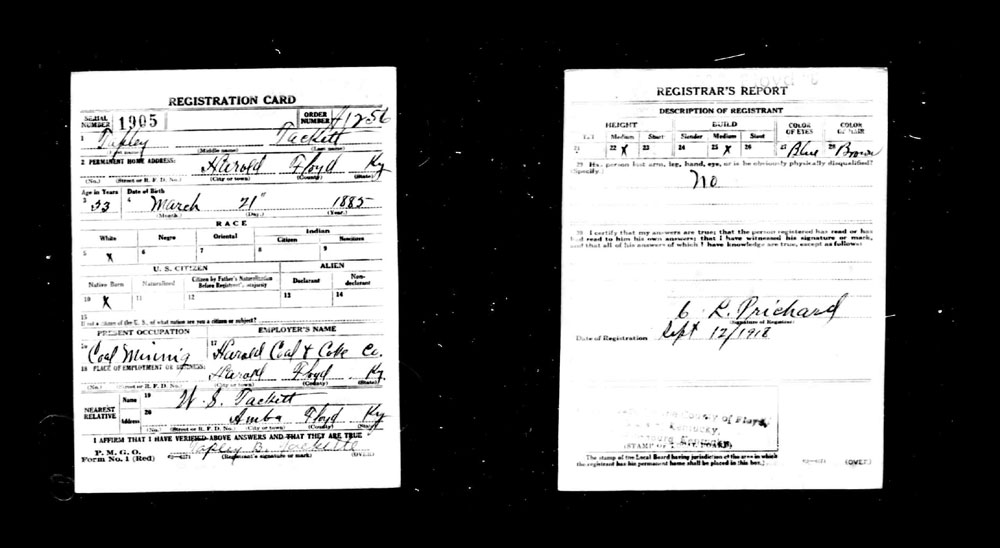 REGISTRATION CARD
SERIAL NUMBER 1905 ORDER NUMBER A1256
1 Tapley Tackett
(Middle name) (Last name)
2 PERMANENT HOME ADDRESS:
Harold Floyd Ky
(No.) (Street or R. F. D. No.) (City or town) (County) (State)
Age in Years Date of Birth
3 33 4 March 21" 1885
(Month.) (Day.) (Year.)
RACE
White Negro Oriental Indian
Citizen Noncitizen
5 X 6 7 8 9
U. S. CITIZEN ALIEN
Native Born Naturalized Citizen by Father's Naturalization Before Registrant's majority Declarant Non-declarant
10 X 11 12 13 14
15
If not a citizen of the U. S., of what nation are you a citizen or subject?
PRESENT OCCUPATION EMPLOYER'S NAME
16 Coal Minnig 17 Harold Coal & Coke Co.
18 PLACE OF EMPLOYMENT OR BUSINESS:
Harold Floyd Ky.
(No.) (Street or R. F. D. No.) (City or town) (County) (State)
NEAREST RELATIVE
Name 19 W. S. Tackett
Address 20 Amba Floyd Ky
(No.) (Street or R. F. D. No.) (City or town) (County) (State)
I AFFIRM THAT I HAVE VERIFIED ABOVE ANSWERS AND THAT THEY ARE TRUE
P. M. G. O.
Form No. 1 (Red) Tapley B. Tackette
(Registrant's signature or mark) (OVER)
REGISTRAR'S REPORT
DESCRIPTION OF REGISTRANT
HEIGHT BUILD COLOR OF EYES COLOR OF HAIR
Tall Medium Short Slender Medium Stout
21 22 X 23 24 25 X 26 27 Blue 28 Brown
29 Has person lost arm, leg, hand, eye, or is he obviously physically disqualified?
(Specify.) No
30 I certify that my answers are true; that the person registered has read or has
had read to him his own answers; that I have witnessed his signature or mark,
and that all of his answers of which I have knowledge are true, except as follows:
C L. Prichard
(Signature of Registrar)
Date of Registration Sept 12/1918
County of Floyd,
Kentucky,
(STAMP OF LOCAL BOARD)
The stamp of the Local Board having jurisdiction of the area in which
the registrant has his permanent home shall be placed in this box.
(OVER)